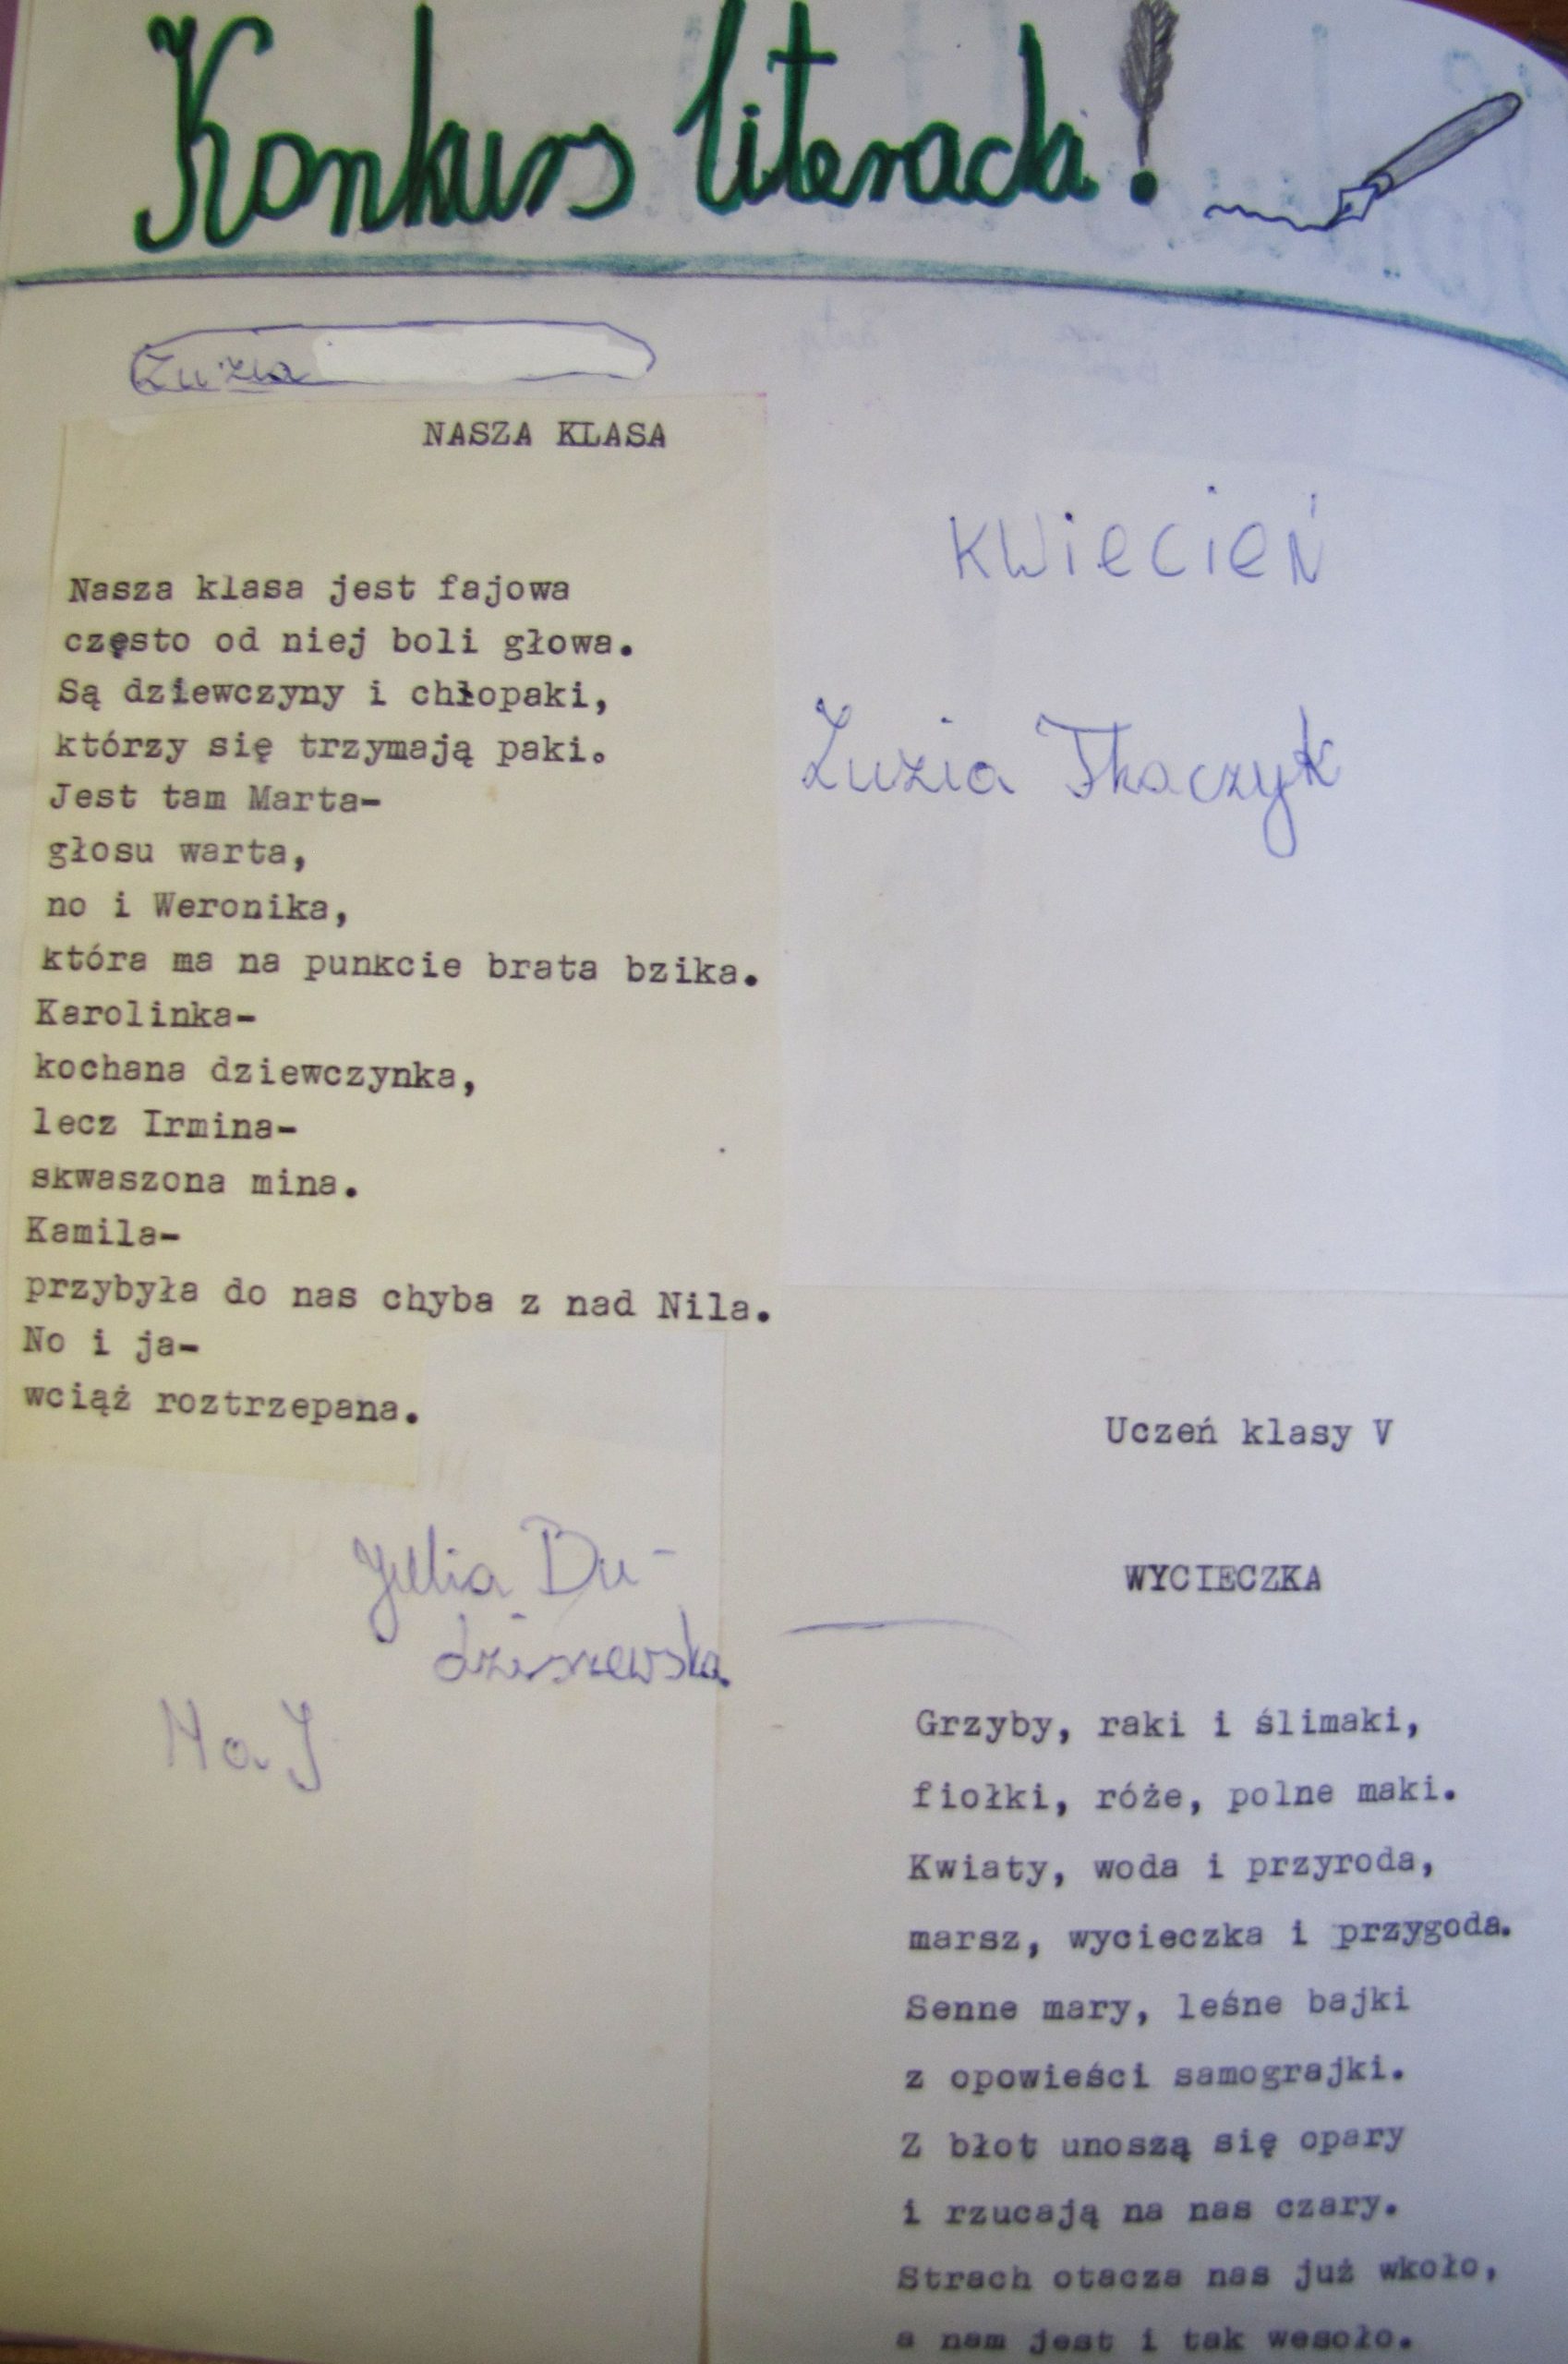 Konkurs literacki!
Zuzia
NASZA KLASA
Nasza klasa jest fajowa
często od niej boli głowa.
Są dziewczyny i chłopaki,
którzy się trzymają paki.
Jest tam Marta-
głosu warta,
no i Weronika,
która ma na punkcie brata bzika.
Karolinka-
kochana dziewczynka,
lecz Irmina-
skwaszona mina.
Kamila-
przybyła do nas chyba z nad Nila.
No i ja-
wciąż roztrzepana.
Julia Du-
dziszewska
Maj
kwiecień
Zuzia Tkaczyk
Uczeń klasy V
WYCIECZKA
Grzyby, raki i ślimaki,
fiołki, róże, polne maki.
Kwiaty, woda i przyroda,
marsz, wycieczka i przygoda.
Senne mary, leśne bajki
z opowieści samograjki.
Z błot unoszą się opary
i rzucają na nas czary.
Strach otacza nas już wkoło,
a nam jest i tak wesoło.